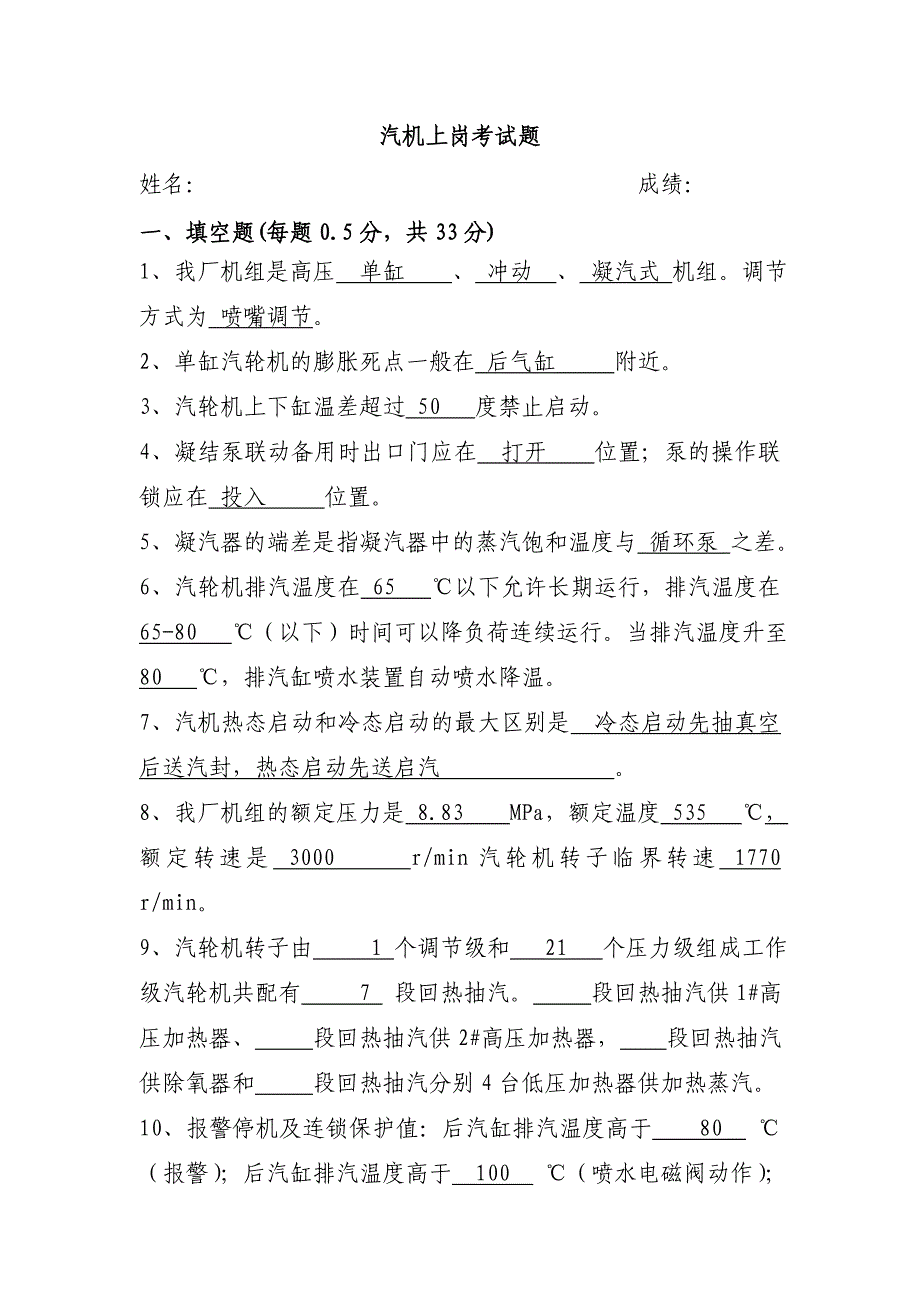 汽机上岗考试题
姓名： 成绩：
一、填空题(每题0.5分，共33分)
1、我厂机组是高压 单缸 、 冲动 、 凝汽式 机组。调节
方式为 喷嘴调节。
2、单缸汽轮机的膨胀死点一般在 后气缸 附近。
3、汽轮机上下缸温差超过 50 度禁止启动。
4、凝结泵联动备用时出口门应在 打开 位置；泵的操作联
锁应在 投入 位置。
5、凝汽器的端差是指凝汽器中的蒸汽饱和温度与 循环泵 之差。
6、汽轮机排汽温度在 65 ℃以下允许长期运行，排汽温度在
65-80 ℃（以下）时间可以降负荷连续运行。当排汽温度升至
80 ℃，排汽缸喷水装置自动喷水降温。
7、汽机热态启动和冷态启动的最大区别是 冷态启动先抽真空
后送汽封，热态启动先送启汽 。
8、我厂机组的额定压力是 8.83 MPa，额定温度 535 ℃，
额定转速是 3000 r/min 汽轮机转子临界转速 1770
r/min。
9、汽轮机转子由 1 个调节级和 21 个压力级组成工作
级汽轮机共配有 7 段回热抽汽。 段回热抽汽供 1#高
压加热器、 段回热抽汽供 2#高压加热器， 段回热抽汽
供除氧器和 段回热抽汽分别 4 台低压加热器供加热蒸汽。
10、报警停机及连锁保护值：后汽缸排汽温度高于 80 ℃
（报警）；后汽缸排汽温度高于 100 ℃（喷水电磁阀动作）；